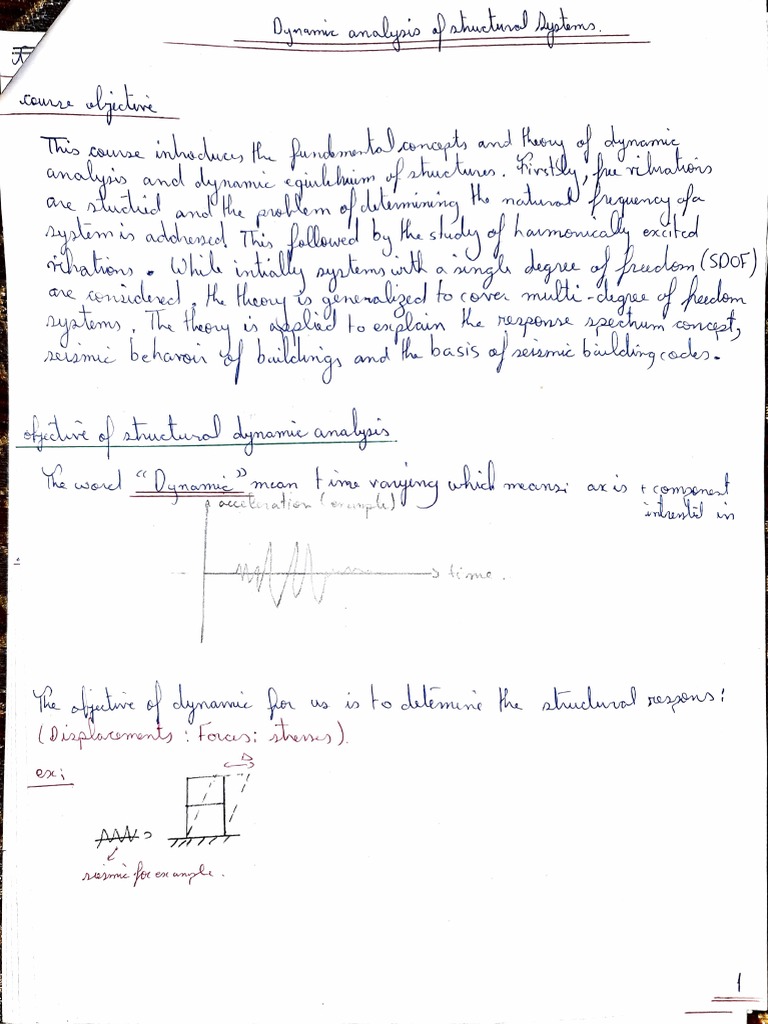 Dynamic analysis of structural Systems.
course objective
This course introduces the fundamental concepts and theory of dynamic
analysis and dynamic equilibrium of structures. Firstly, free vibrations
are studied and the problem of determining the natural frequency of a
system is addressed This followed by the study of harmonically excited
vibrations. While intially systems with a single degree of freedom (SDOF)
are considered, the theory is generalized to cover multi-degree of freedom
systems. The theory is applied to explain the response spectrum concept,
seismic behavoir of buildings and the basis of seismic building codes.
objective of structural dynamic analysis
The word "Dynamic" mean time varying which means: axis + component
intrestid in
acceleration (example)
time.
The objective of dynamic for us is to detemine the structural respons:
(Displacements : Forces : stresses).
ex:
Δ
seismic for example.
1